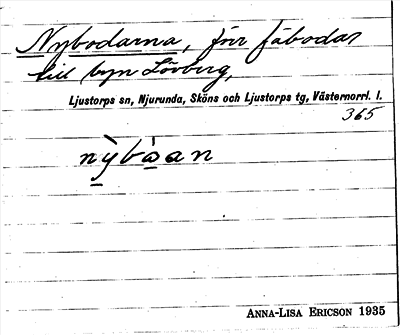 Nybodarna, förr fäbodar
till byn Lövberg,
Ljustorps sn, Njurunda, Sköns och Ljustorps tg, Västernorrl. l.
365
nỳbὰan
ANNA-LISA ERICSON 1935